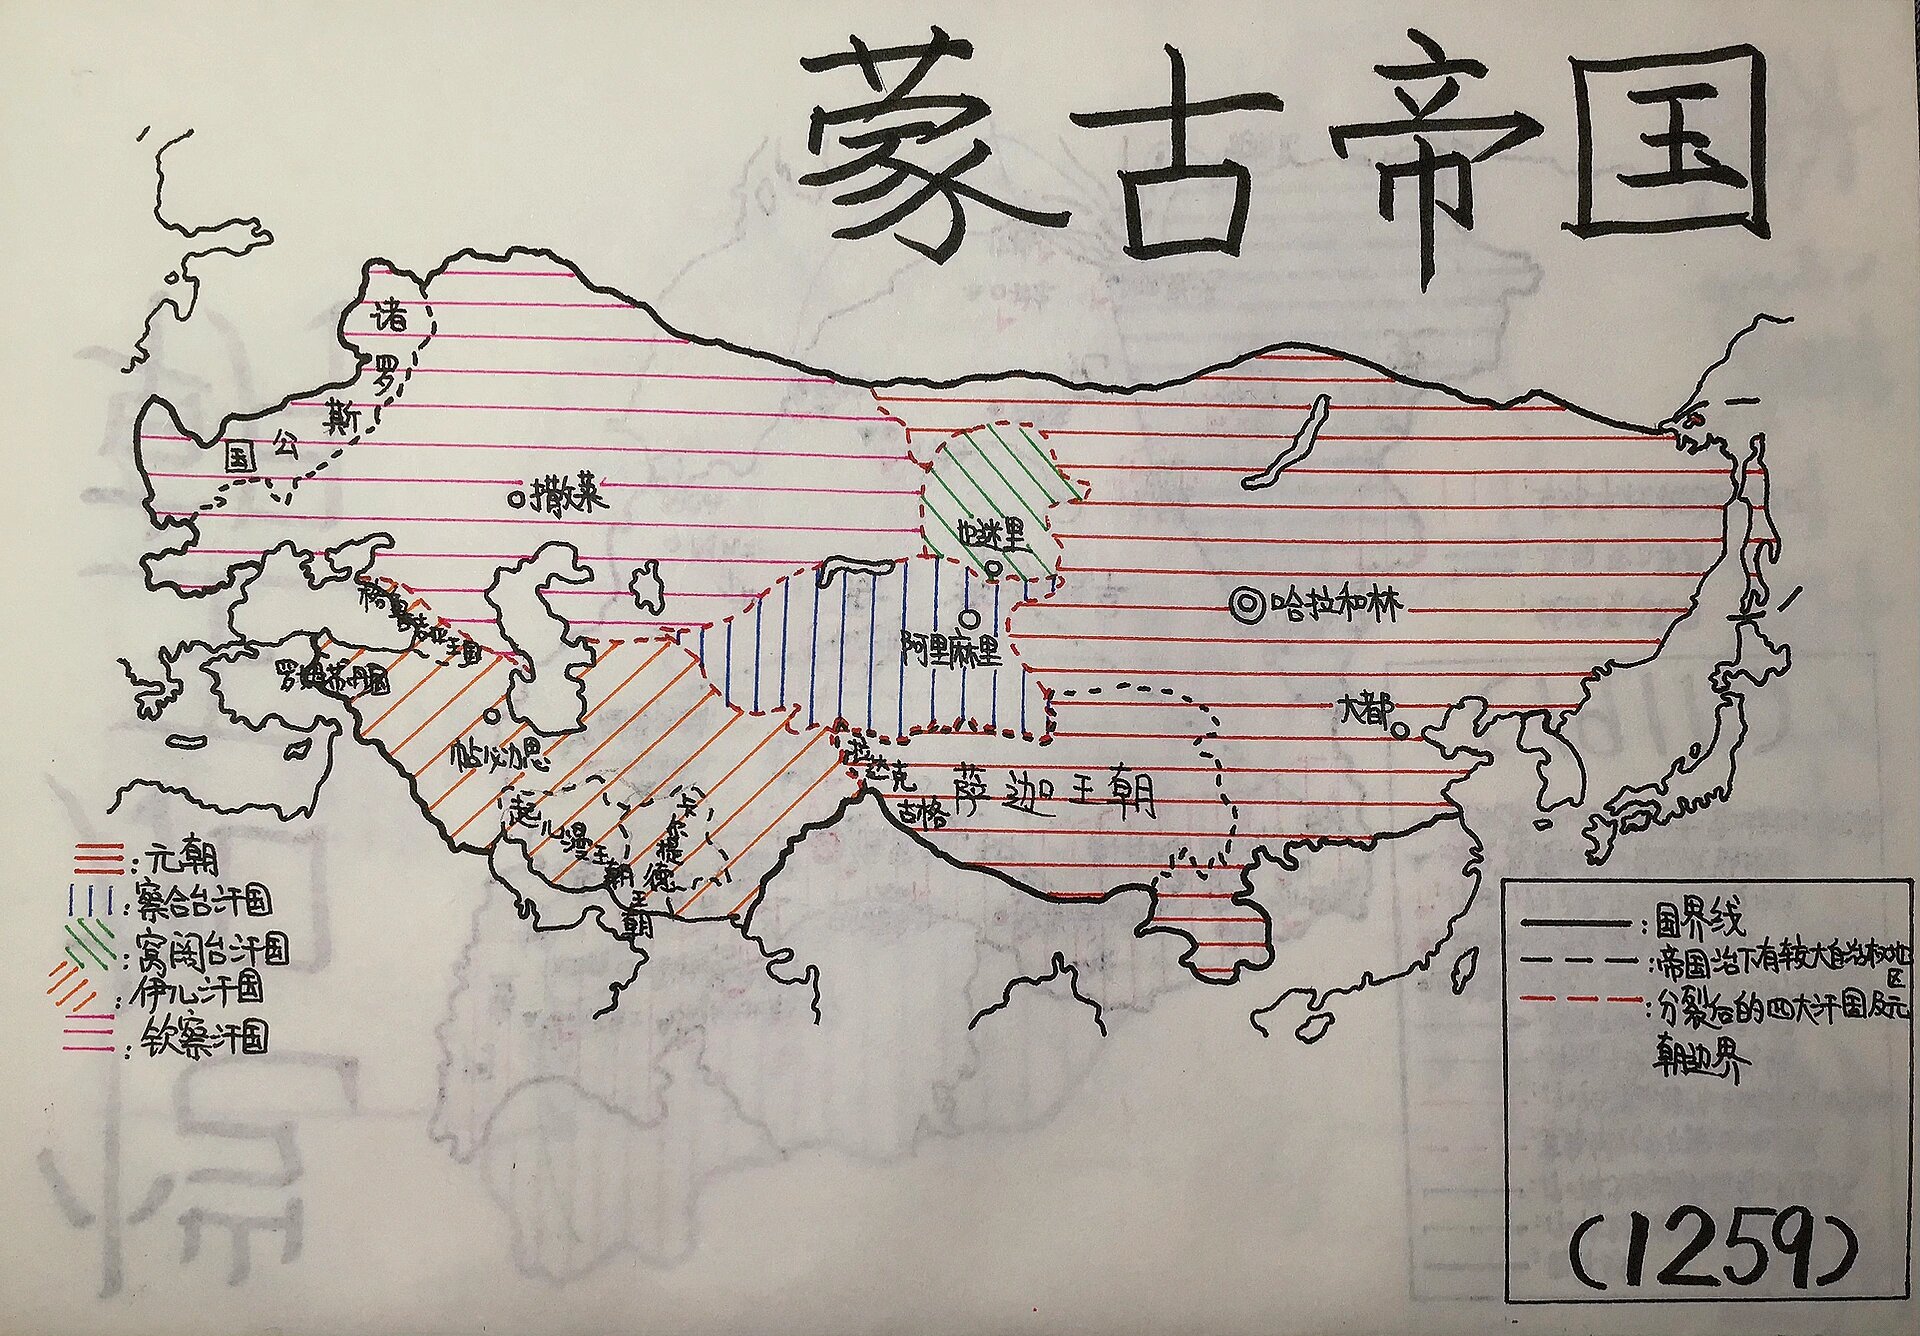 蒙古帝国
诸罗斯公国
撒莱
也迷里
阿里麻里
哈拉和林
大都
格鲁吉亚王国
罗姆苏丹国
帖必力思
起儿漫王朝
卡尔提德王朝
拉达克
古格
萨迦王朝
:元朝
:察合台汗国
:窝阔台汗国
:伊儿汗国
:钦察汗国
:国界线
:帝国治下有较大自治权地
区
:分裂后的四大汗国及元
朝边界
(1259)